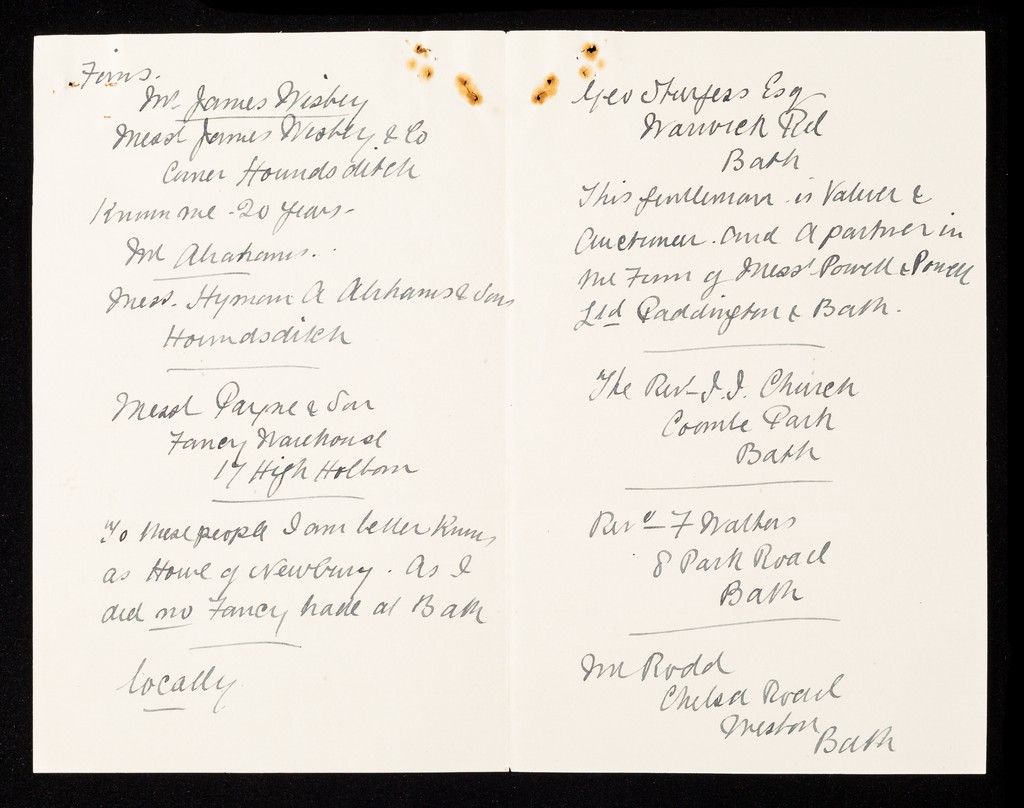 Firms.
Mr. James Wisbey
Messrs James Wisbey & Co
Corner Houndsditch
Known me 20 years -
Mr Abrahams.
Messrs. Hyman A Abrahams & Sons
Houndsditch
Messrs Payne & Son
Fancy Warehouse
17 High Holborn
To these people I am better Known
as Howe of Newbury. As I
did no Fancy trade at Bath
locally
Geo Sturgess Esq
Warwick Rd
Bath
This gentleman is Valuer &
Auctioneer. And a partner in
the Firm of Messrs Powell & Powell
Ltd Paddington & Bath.
The Revd J.J. Church
Coombe Park
Bath
Revd F Walters
8 Park Road
Bath
Mr Rodd
Chelsea Road
Weston
Bath